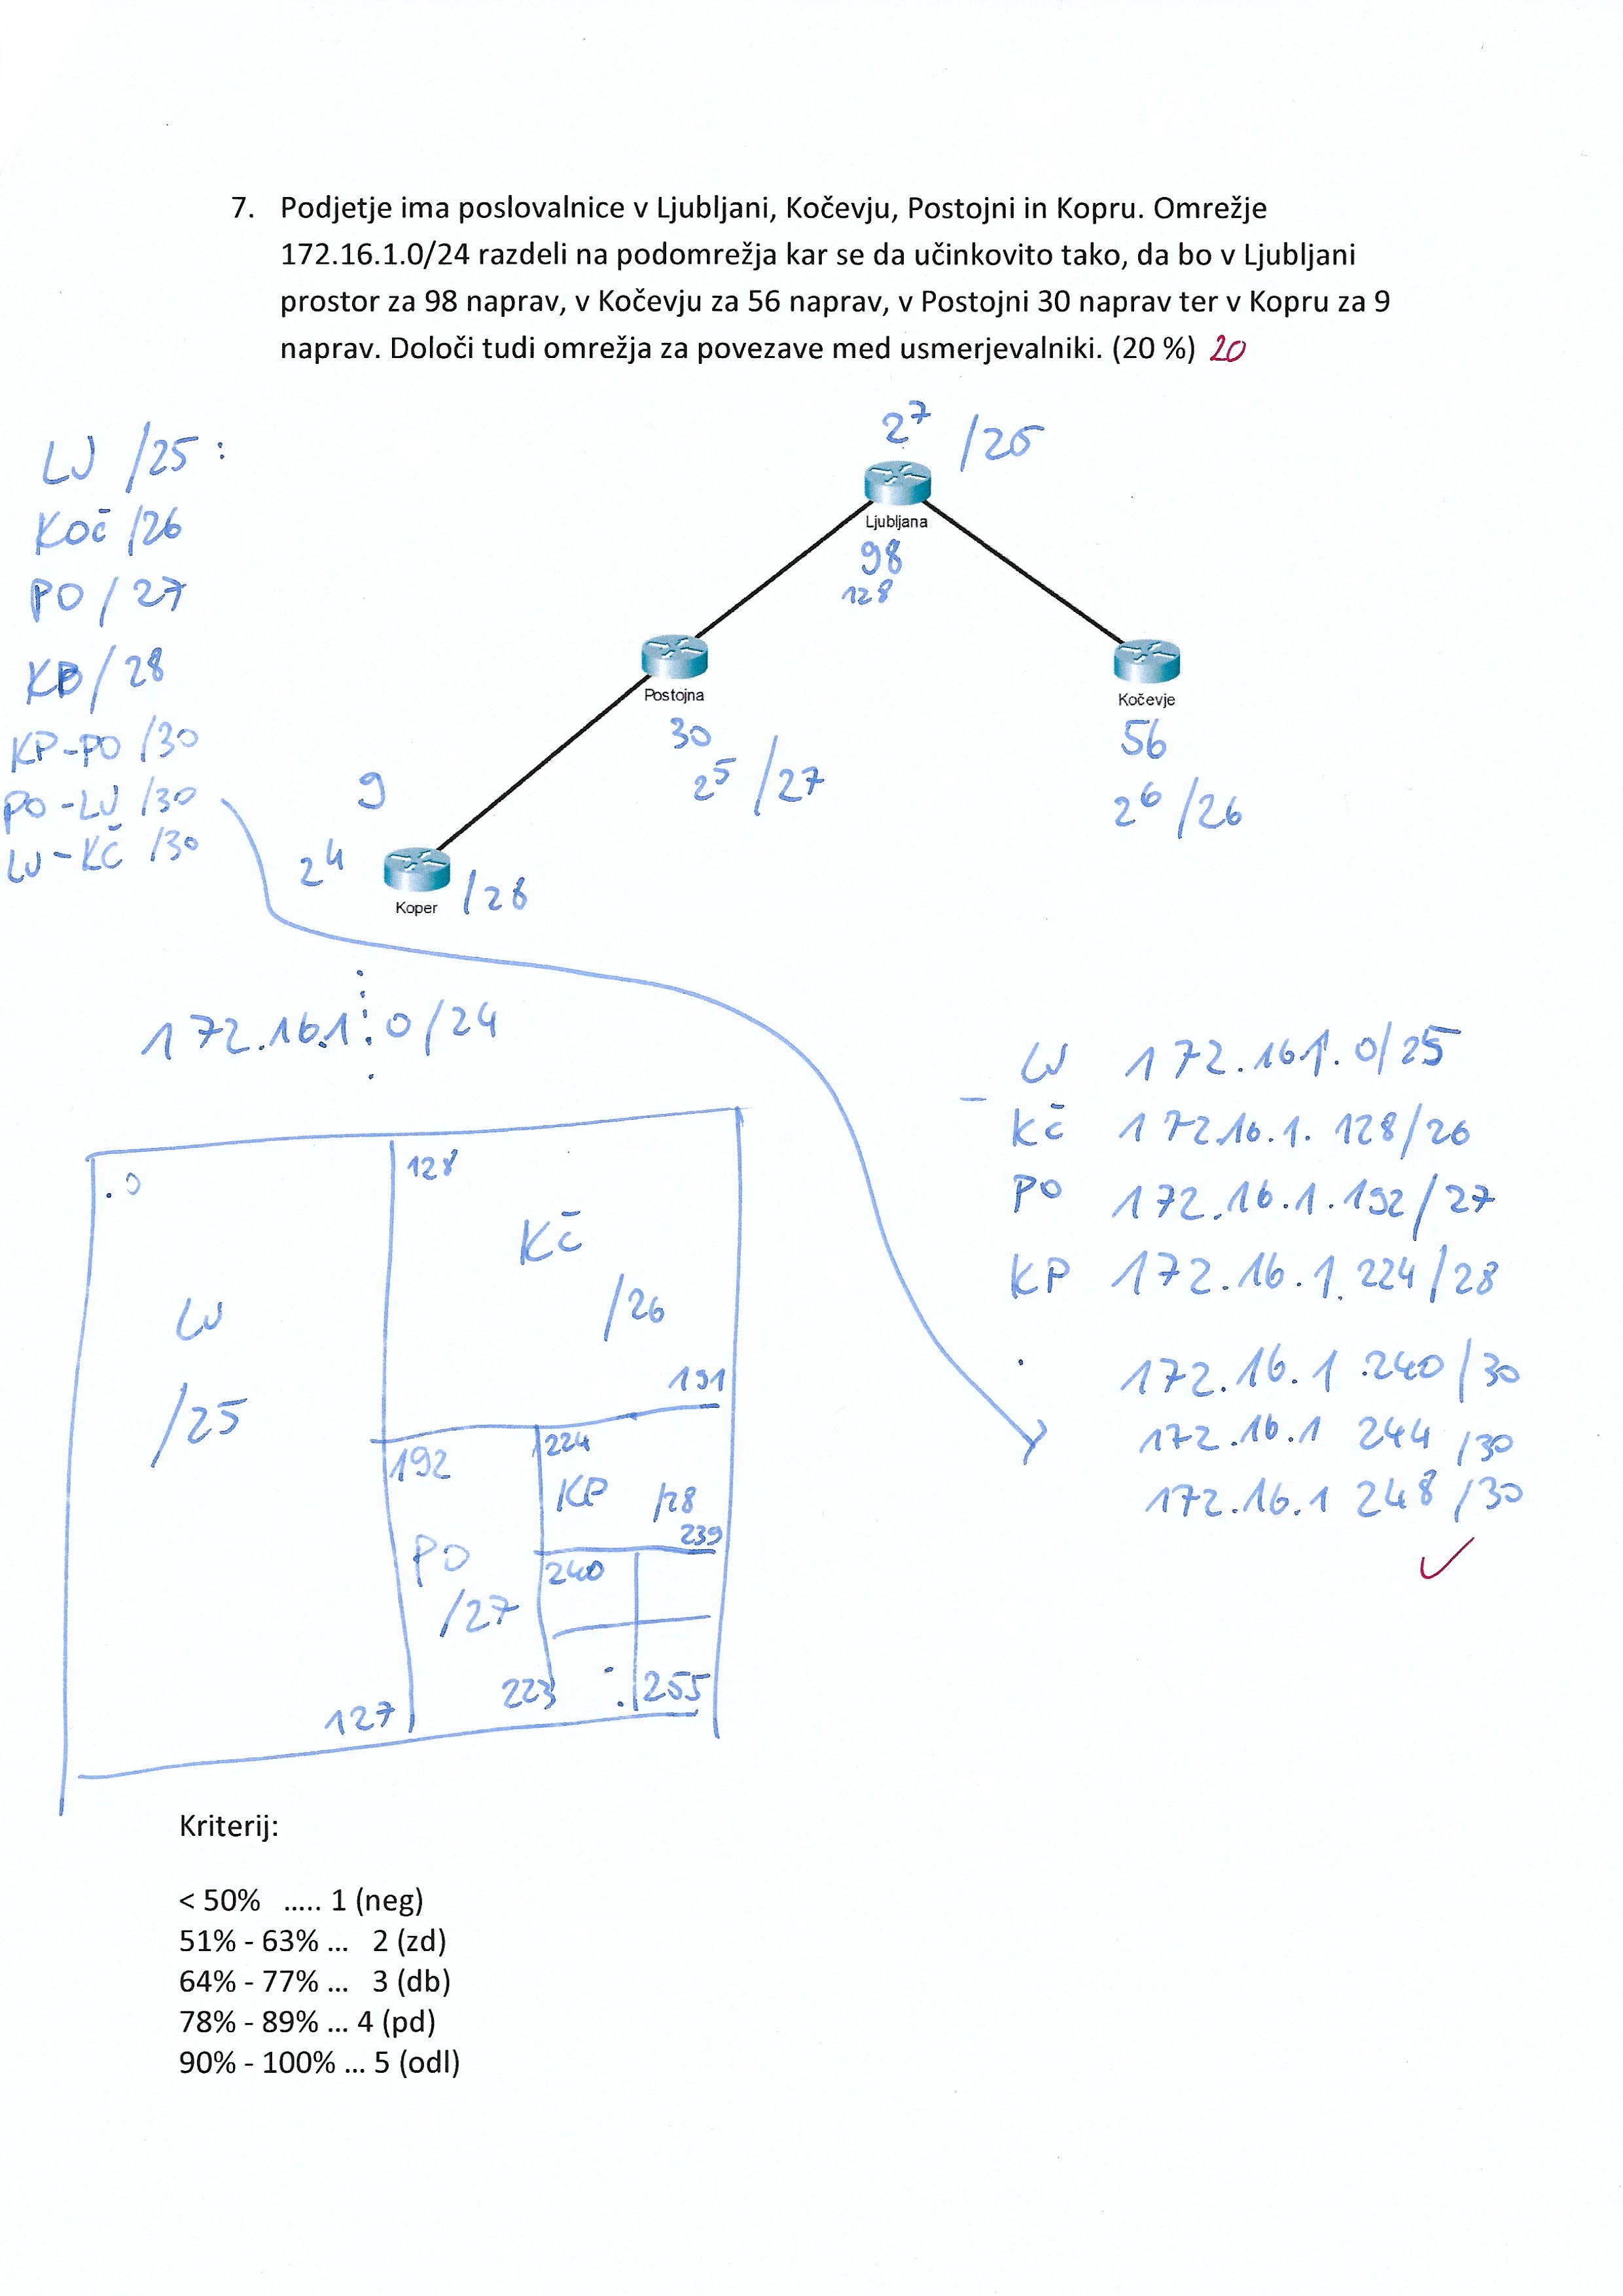 7. Podjetje ima poslovalnice v Ljubljani, Kočevju, Postojni in Kopru. Omrežje
172.16.1.0/24 razdeli na podomrežja kar se da učinkovito tako, da bo v Ljubljani
prostor za 98 naprav, v Kočevju za 56 naprav, v Postojni 30 naprav ter v Kopru za 9
naprav. Določi tudi omrežja za povezave med usmerjevalniki. (20 %) 20
LJ /25 :
KOČ /26
PO / 27
KP / 28
KP-PO /30
PO-LJ /30
LJ-KČ /30
2^7 /25
Ljubljana
98
128
Postojna
30
2^5 /27
Kočevje
56
2^6 /26
9
2^4
Koper /28
172.16.1.0/24
LJ 172.16.1.0/25
KČ 172.16.1.128/26
PO 172.16.1.192/27
KP 172.16.1.224/28
172.16.1.240/30
172.16.1 244 /30
172.16.1 248 /30
.0
128
KČ
/26
191
LJ
/25
127
192
PO
/27
223
224
KP /28
239
240
255
Kriterij:
< 50% ..... 1 (neg)
51% - 63% ... 2 (zd)
64% - 77% ... 3 (db)
78% - 89% ... 4 (pd)
90% - 100% ... 5 (odl)